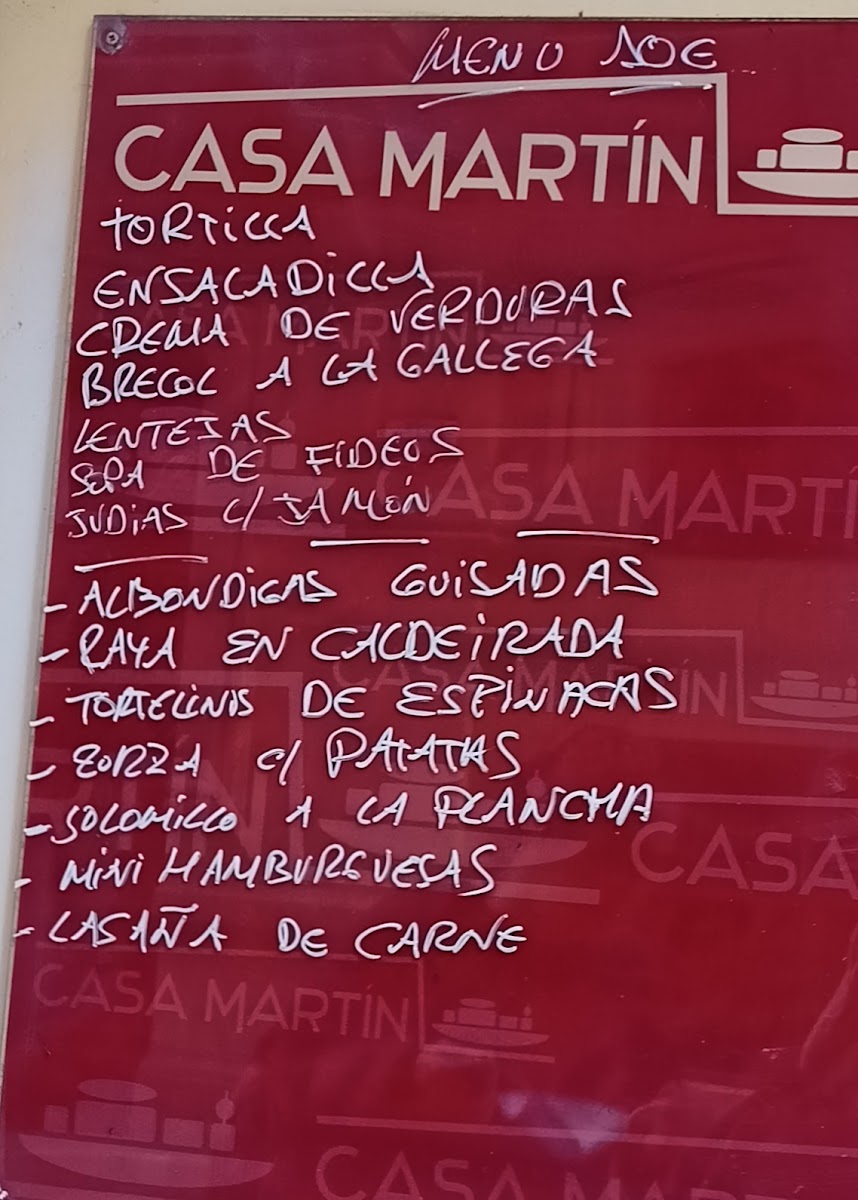 MENU 10€
CASA MARTÍN
TORTILLA
ENSALADILLA
CREMA DE VERDURAS
BRECOL A LA GALLEGA
LENTEJAS
SOPA DE FIDEOS
JUDIAS C/ JAMÓN
CASA MARTÍ
- ALBONDIGAS GUISADAS
- RAYA EN CALDEIRADA
- TORTELINIS DE ESPINACAS
- ZORZA C/ PATATAS
- SOLOMILLO A LA PLANCHA
CASA
- MINI HAMBURGUESAS
- LASAÑA DE CARNE
CASA MARTÍN
CASA MARTÍN